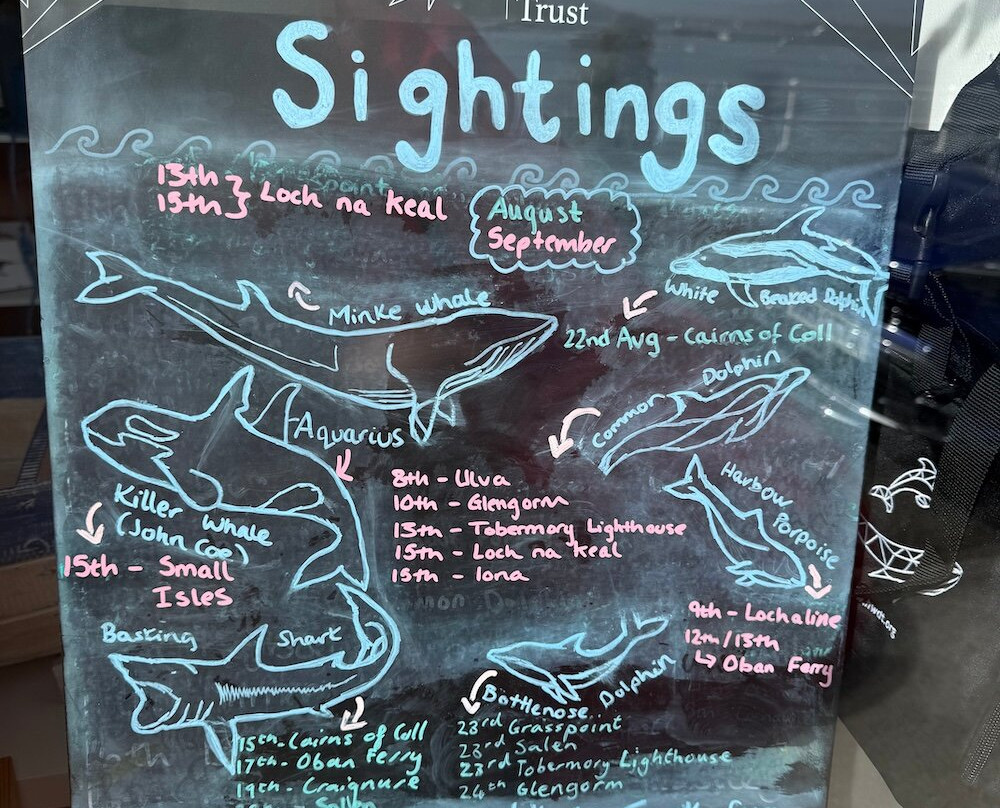 Trust
Sightings
13th } Loch na Keal
15th }
August
September
Minke Whale
White Beaked Dolphin
22nd Aug - Cairns of Coll
Common Dolphin
8th - Ulva
10th - Glengorm
13th - Tobermory Lighthouse
15th - Loch na Keal
15th - Iona
Aquarius
Killer Whale
(John Coe)
15th - Small
Isles
Harbour Porpoise
9th - Lochaline
12th/13th
↳ Oban Ferry
Basking Shark
15th - Cairns of Coll
17th - Oban Ferry
19th - Craignure
Bottlenose Dolphin
23rd Grasspoint
23rd Salen
23rd Tobermory Lighthouse
24th Glengorm